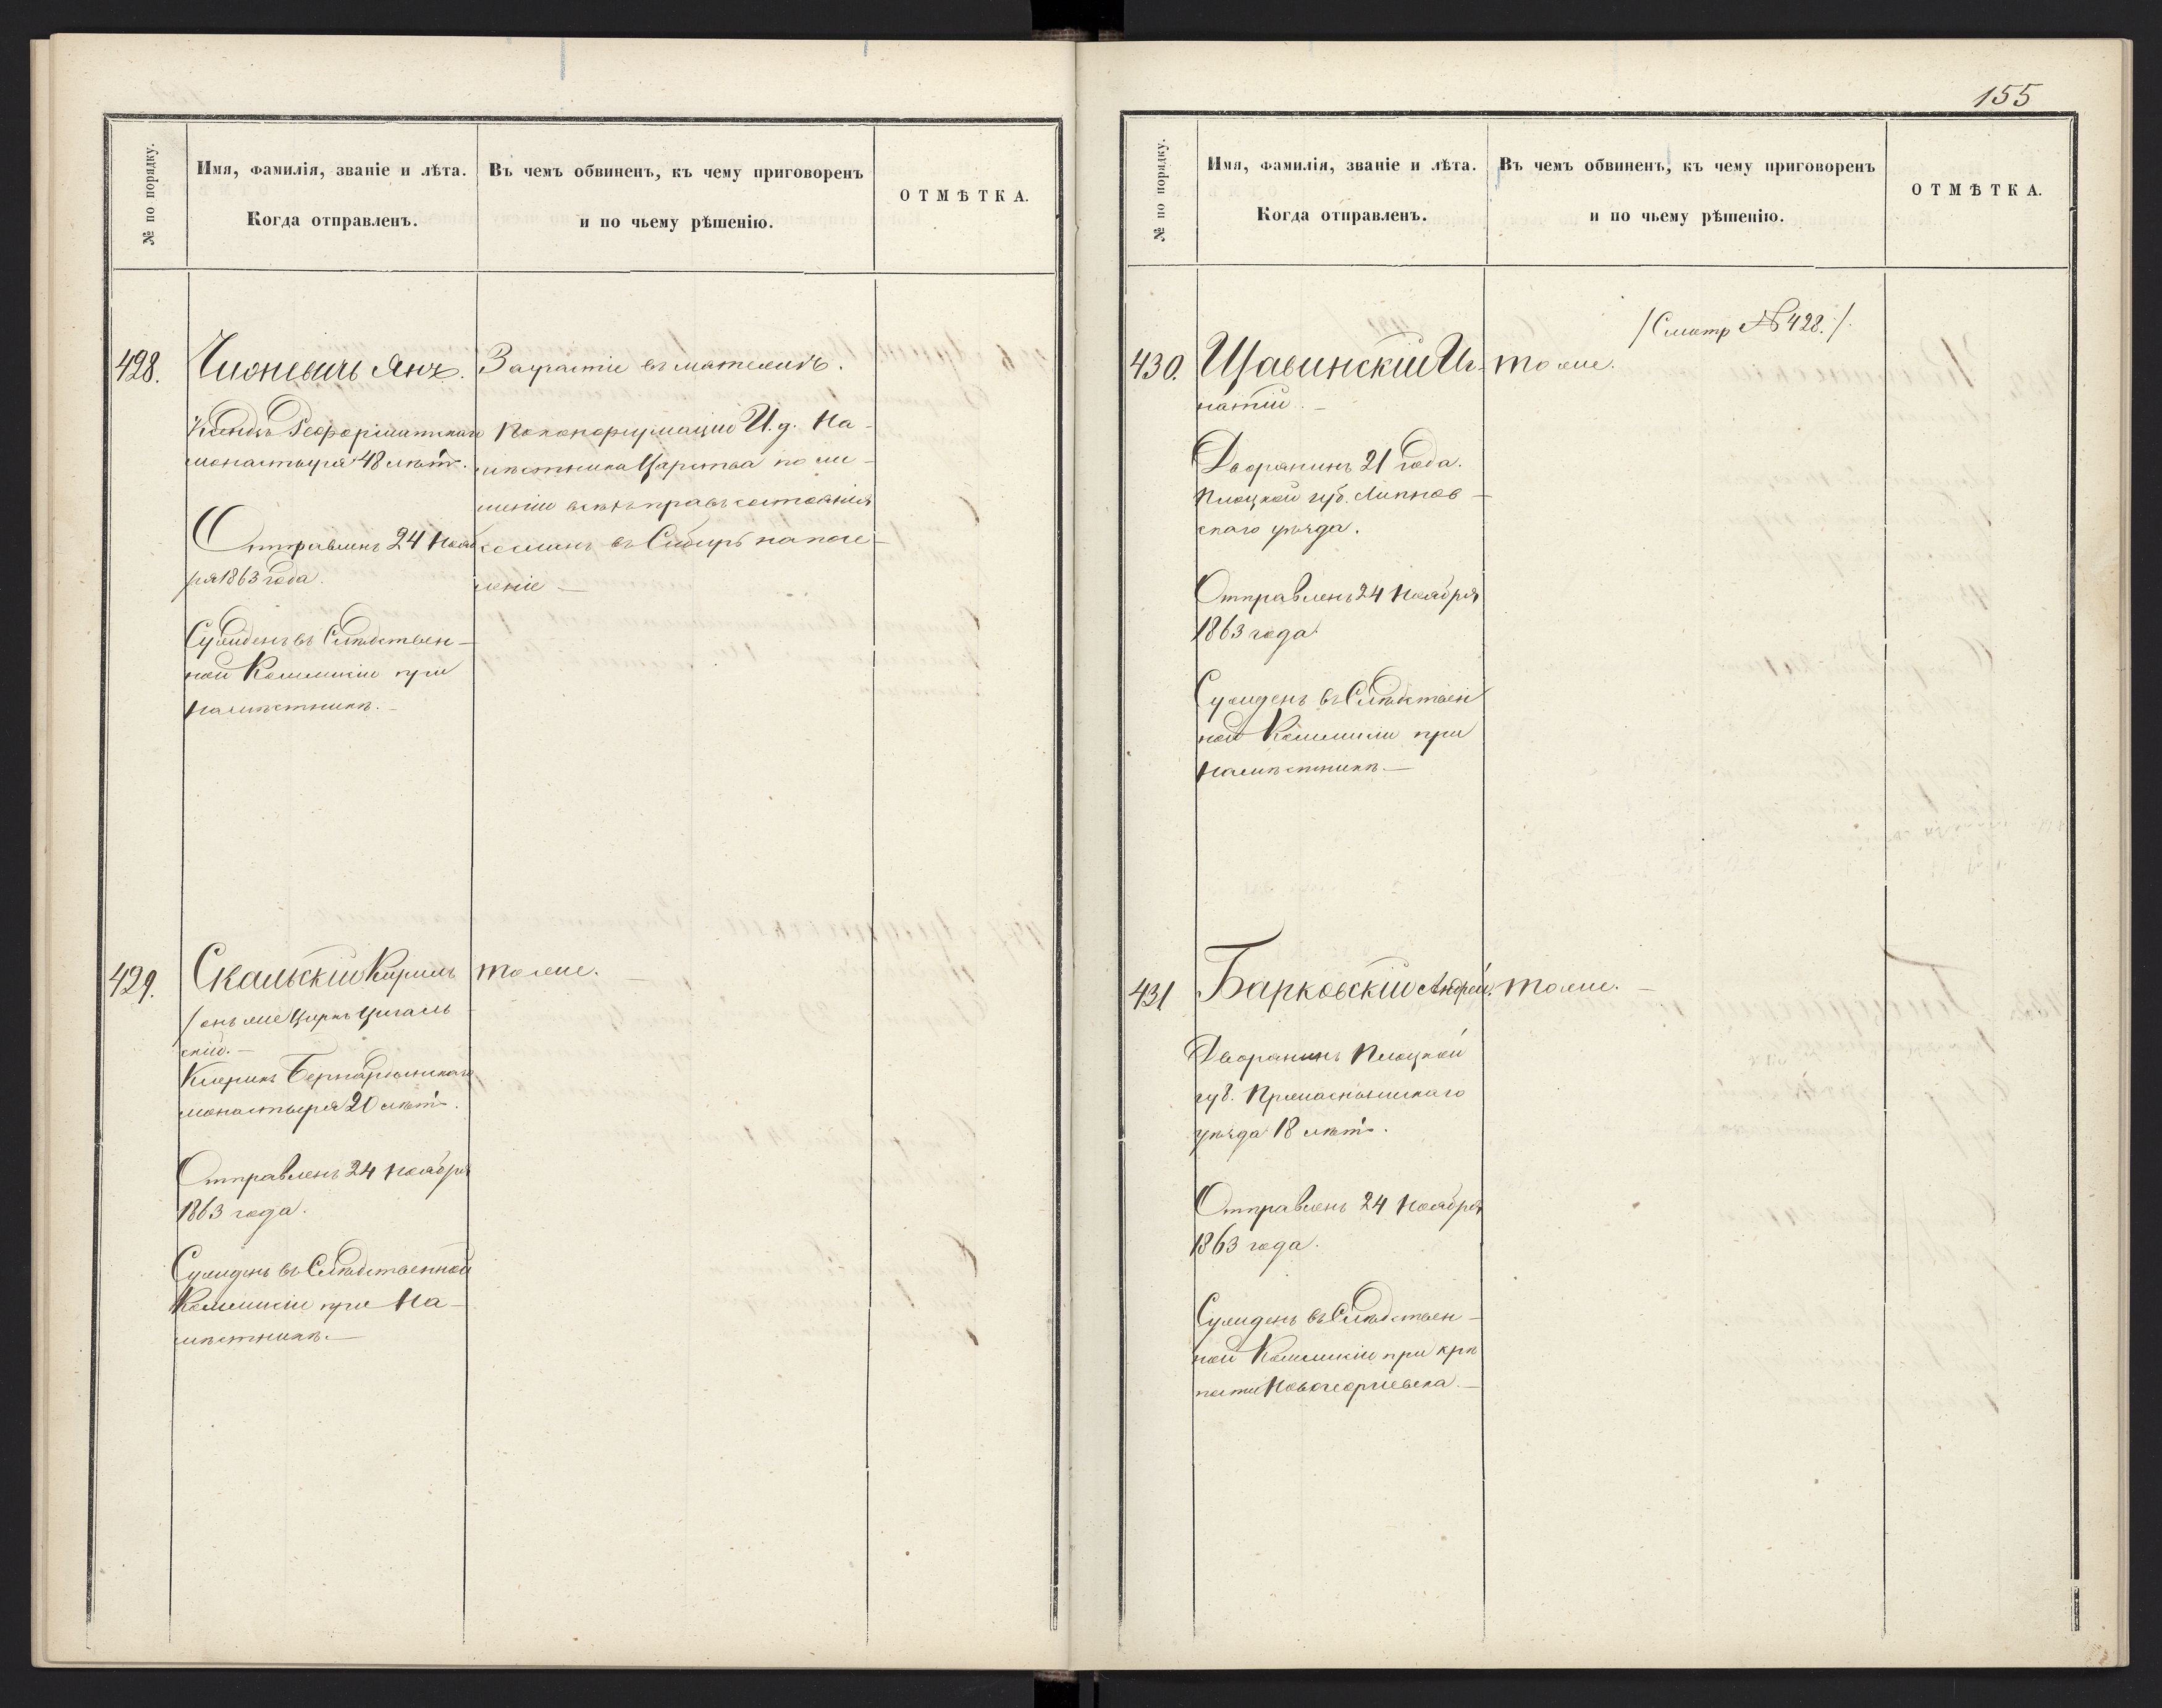 № по порядку.
Имя, фамилія, званіе и лѣта.
Когда отправленъ.
Въ чемъ обвиненъ, къ чему приговоренъ
и по чьему рѣшенію.
ОТМѢТКА.
428.
Чионевичъ Янъ.
Ксендзъ Реформатскаго
монастыря 48 лѣтъ.
Отправленъ 24 Нояб
ря 1863 года.
Сужденъ въ Слѣдствен-
ной Коммисіи при
Намѣстникѣ.-
За участіе въ мятежѣ.
По конфирмаціи И. д. На-
мѣстника Царства по ли-
шеніи всѣхъ правъ состоянія
сосланъ въ Сибирь на посе-
леніе -
429.
Скальскій Кирилъ
/онъ же Цигаль
скій.-
Клерикъ Бернардинскаго
монастыря 20 лѣтъ.
Отправленъ 24 Ноября
1863 года.
Сужденъ въ Слѣдственной
Коммисіи при На-
мѣстникѣ.-
тоже. -
155
№ по порядку.
Имя, фамилія, званіе и лѣта.
Когда отправленъ.
Въ чемъ обвиненъ, къ чему приговоренъ
и по чьему рѣшенію.
ОТМѢТКА.
/Смотр № 428./.
430.
Щавинскій Иг-
натій. -
Дворянинъ 21 года.
Плоцкой губ. Липнов-
скаго уѣзда.
Отправленъ 24 Ноября
1863 года.
Сужденъ въ Слѣдствен
ной Коммисіи при
Намѣстникѣ.-
тоже.
431
Барковскій Андрей.
Дворянинъ Плоцкой
губ. Праснышскаго
уѣзда 18 лѣтъ.
Отправленъ 24 Ноября
1863 года.
Сужденъ въ Слѣдствен-
ной Коммисіи при крѣ
пости Новогеоргіевска.-
тоже. -